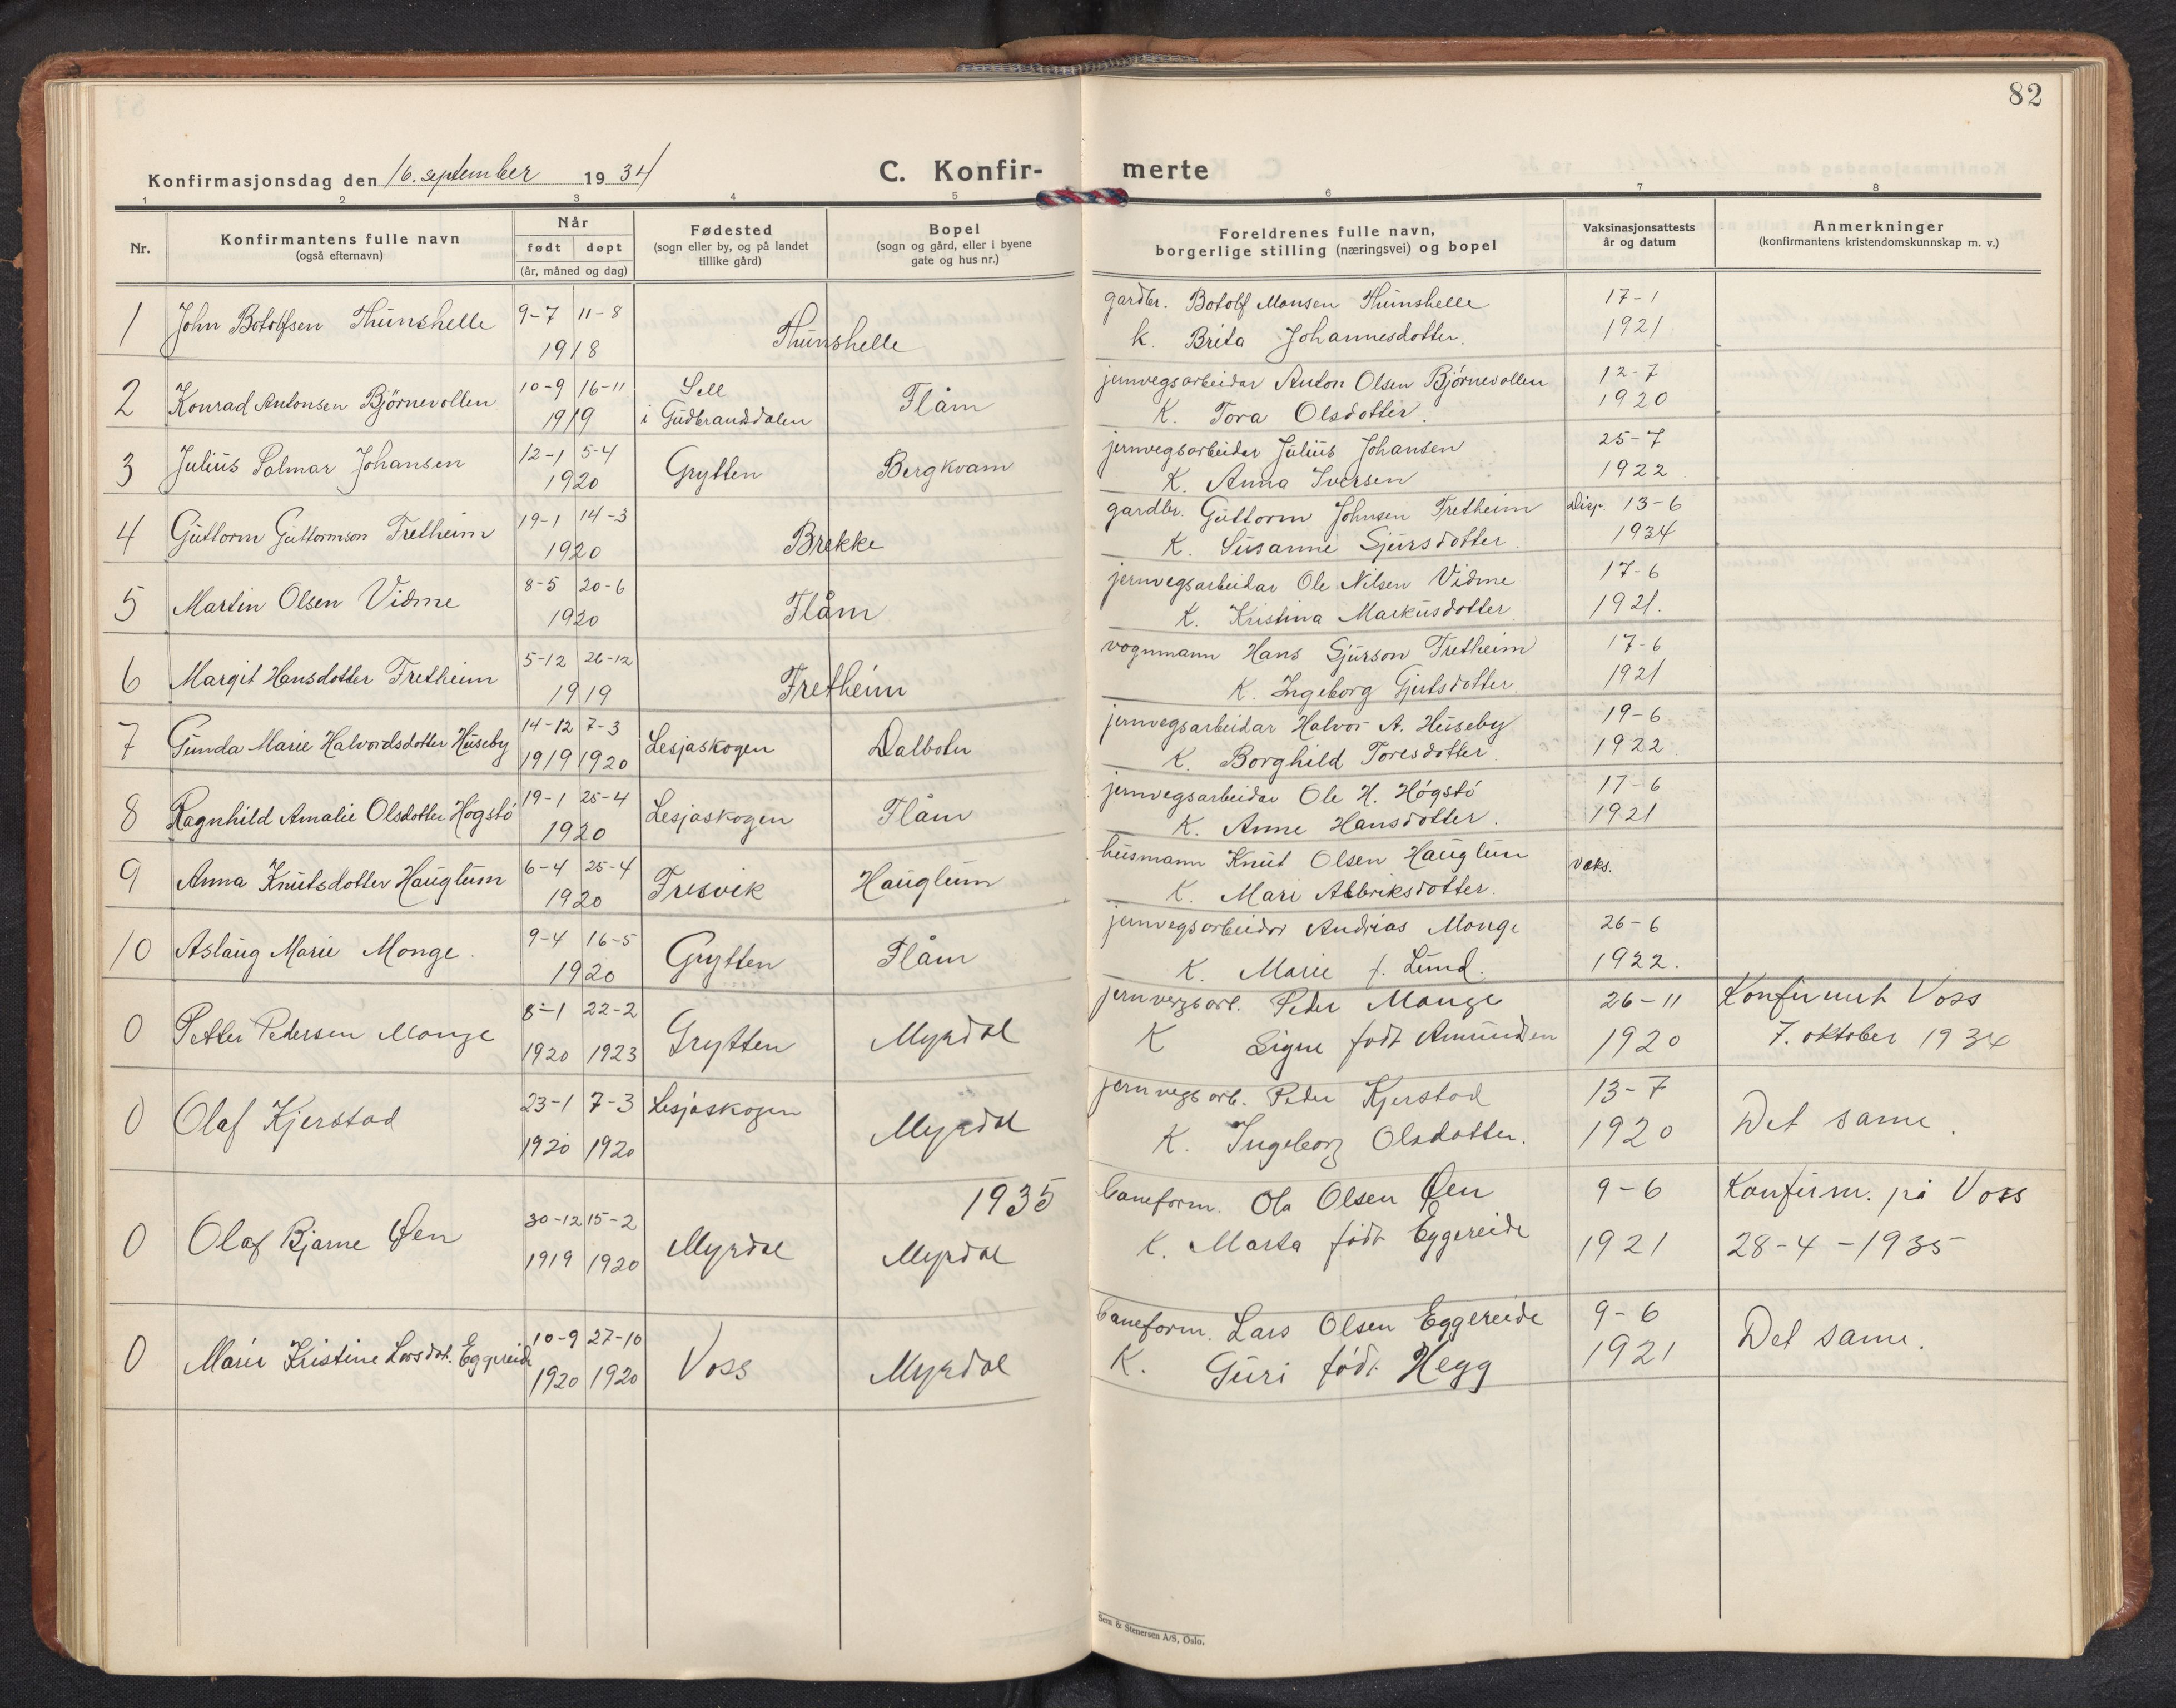 82
Konfirmasjonsdag den 16. september 1934
C. Konfir-
merte
1 2 3 4 5 6 7 8
Nr.
Konfirmantens fulle navn
(også efternavn)
Når
født døpt
(år, måned og dag)
Fødested
(sogn eller by, og på landet
tillike gård)
Bopel
(sogn og gård, eller i byene
gate og hus nr.)
Foreldrenes fulle navn,
borgerlige stilling (næringsvei) og bopel
Vaksinasjonsattests
år og datum
Anmerkninger
(konfirmantens kristendomskunnskap m. v.)
1 John Botolfsen Thunshelle 9-7 11-8 Thunshelle gardbr. Botolf Monsen Thunshelle 17-1
1918 k. Brita Johannesdotter. 1921
2 Konrad Antonsen Björnevollen 10-9 16-11 Sell Flåm jernvegsarbeidar Anton Olsen Bjørnevollen 12-7
1919 i Gudbrandsdalen K. Tora Olsdotter. 1920
3 Julius Palmar Johansen 12-1 5-4 Grytten Bergkvam jernvegsarbeidar Julius Johansen 25-7
1920 K. Anna Iversen 1922
4 Guttorm Guttormson Fretheim 19-1 14-3 Brekke gardbr. Guttorm Johnsen Fretheim Disp. 13-6
1920 K. Susanne Sjursdotter. 1934
5 Martin Olsen Vidme 8-5 20-6 Flåm jernvegsarbeidar Ole Nilsen Vidme 17-6
1920 K. Kristina Markusdotter 1921.
6 Margit Hansdotter Fretheim 5-12 26-12 Fretheim vognmann Hans Sjurson Fretheim 17-6
1919 K. Ingeborg Gjertsdotter. 1921
7 Gunda Marie Halvordsdotter Huseby 14-12 7-3 Lesjaskogen Dalbotn jernvegsarbeidar Halvor A. Huseby 19-6
1919 1920 K. Borghild Toresdotter. 1922
8 Ragnhild Amalie Olsdotter Högstö 19-1 25-4 Lesjaskogen Flåm jernvegsarbeidar Ole H. Högstö 17-6
1920 K. Anne Hansdotter. 1921
9 Anna Knutsdotter Hauglum 6-4 25-4 Fresvik Hauglum husmann Knut Olsen Hauglum vaks.
1920 K. Mari Albriksdotter.
10 Aslaug Marie Monge. 9-4 16-5 Grytten Flåm jernvegsarbeidar Andrias Monge 26-6
1920 K. Marie f. Lund. 1922.
0 Petter Pedersen Monge 8-1 22-2 Grytten Myrdal jernvegsarb. Peder Monge 26-11 Konfirmert Voss
1920 1923 K Signe født Amundsen 1920 7. oktober 1934
0 Olaf Kjerstad 23-1 7-3 Lesjaskogen Myrdal jernvegsarb. Peder Kjerstad 13-7 Det same.
1920 1920 K. Ingeborg Olsdotter. 1920
1935
0 Olaf Bjarne Øen 30-12 15-2 Myrdal Myrdal baneform. Ola Olsen Øen 9-6 Konfirm. på Voss
1919 1920 K. Marta födt Eggereide 1921 28-4-1935
0 Marie Kristine Larsdot. Eggereide 10-9 27-10 Voss Myrdal baneform. Lars Olsen Eggereide 9-6 Det same.
1920 1920 K. Guri födt Hegg 1921
Sem & Stenersen A/S, Oslo.